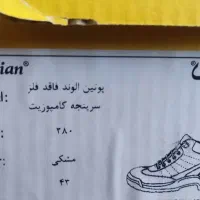 ian®
پوتین الوند فاقد فلز
سرپنجه کامپوزیت
۲۸۰
مشکی
۴۳